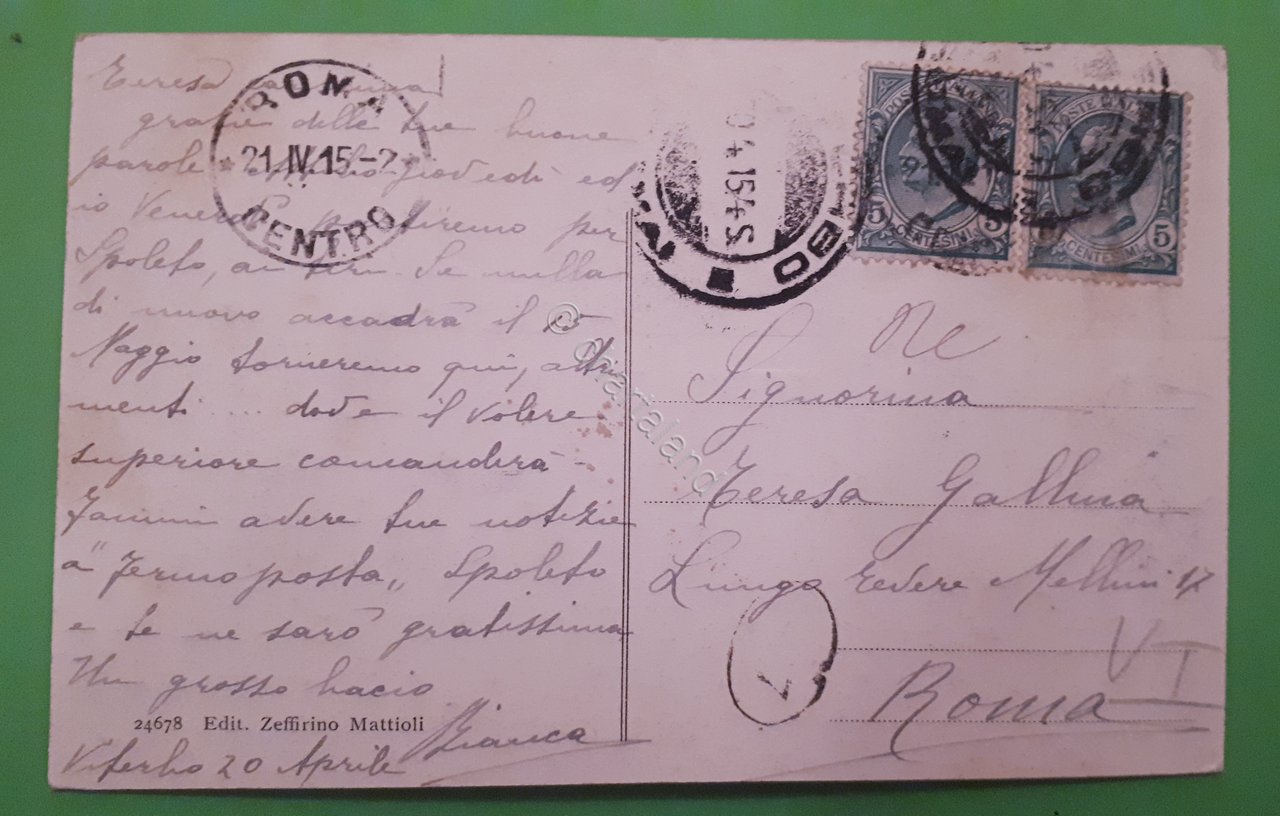 Teresa
grazie delle tue buone
parole giovedì ed
io Venerdì partiremo per
Spoleto, Se nulla
di nuovo accadrà il 15
Maggio torneremo qui, altri
menti ... dove il volere
superiore comanderà -
Fammi avere tue notizie
a "Fermo posta„ Spoleto
e te ne sarò gratissima
Un grosso bacio
Bianca
24678 Edit. Zeffirino Mattioli
Viterbo 20 Aprile
ROMA
21.IV.15-2
CENTRO
POSTE
5 CENTESIMI 5
CENTESIMI 5
© cartaland
Signorina
Teresa Gallina
Lungo Tevere Mellini 17
Roma
VI
7